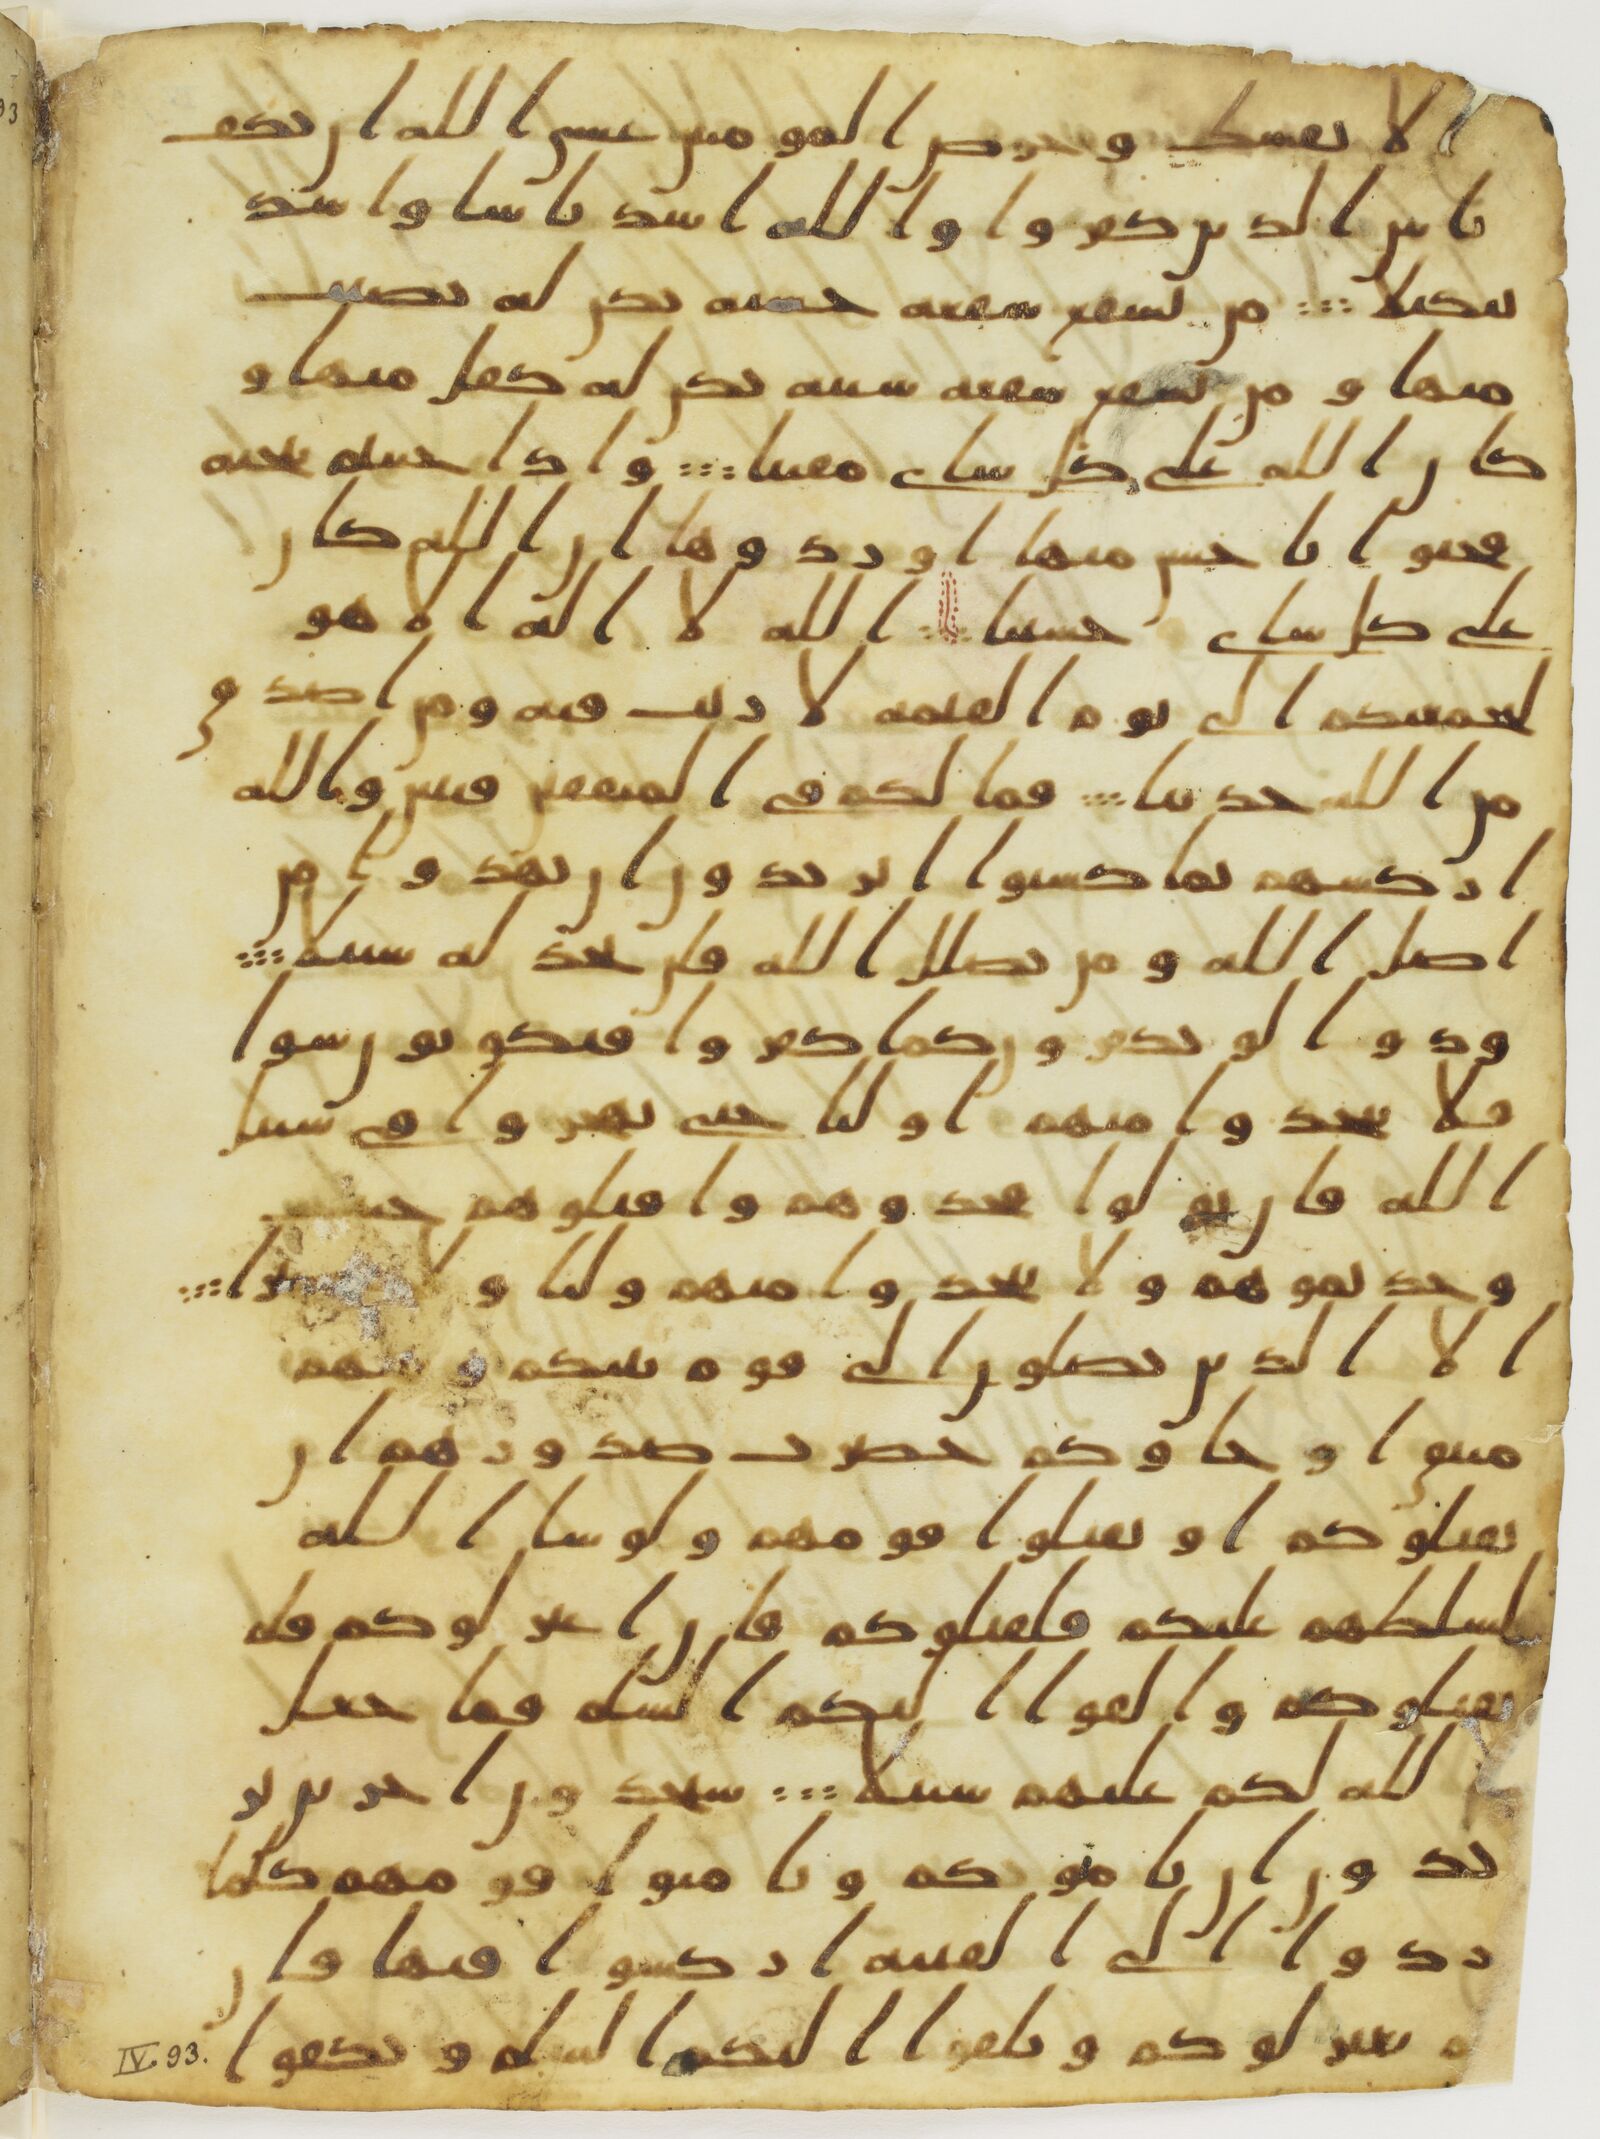 الا نفسك وحرض المومنين عسى الله ان يكف
باس الذين كفروا والله اشد باسا واشد
تنكيلا ؞ من يشفع شفعه حسنه يكن له نصيب
منها ومن يشفع شفعه سيه يكن له كفل منها و
كان الله على كل شاى مقيتا ؞ واذا حييتم بتحيه
فحيوا باحسن منها او ردوها ان الله كان
على كل شاى حسيبا ؞ الله لا اله الا هو
ليجمعنكم الى يوم القيمه لا ريب فيه ومن اصدق
من الله حديثا ؞ فما لكم في المنفقين فيتين والله
اركسهم بما كسبوا اتريدون ان تهدوا من
اضل الله ومن يضلل الله فلن تجد له سبيلا ؞
ودوا لو تكفرون كما كفروا فتكونون سوا
فلا تتخذوا منهم اوليا حتى يهجروا في سبيل
الله فان تولوا فخذوهم واقتلوهم حيث
وجدتموهم ولا تتخذوا منهم وليا ولا نصيرا ؞
الا الذين يصلون الى قوم بينكم وبينهم
ميثق او جاوكم حصرت صدورهم ان
يقتلوكم او يقتلوا قومهم ولو شا الله
لسلطهم عليكم فلقتلوكم فان اعتزلوكم فلم
يقتلوكم والقوا اليكم السلم فما جعل
الله لكم عليهم سبيلا ؞ ستجدون اخرين ير
يدون ان يامنوكم ويامنوا قومهم كلما
ردوا الى الفتنه اركسوا فيها فان
لم يعتزلوكم ويلقوا اليكم السلم ويكفوا
IV. 93.